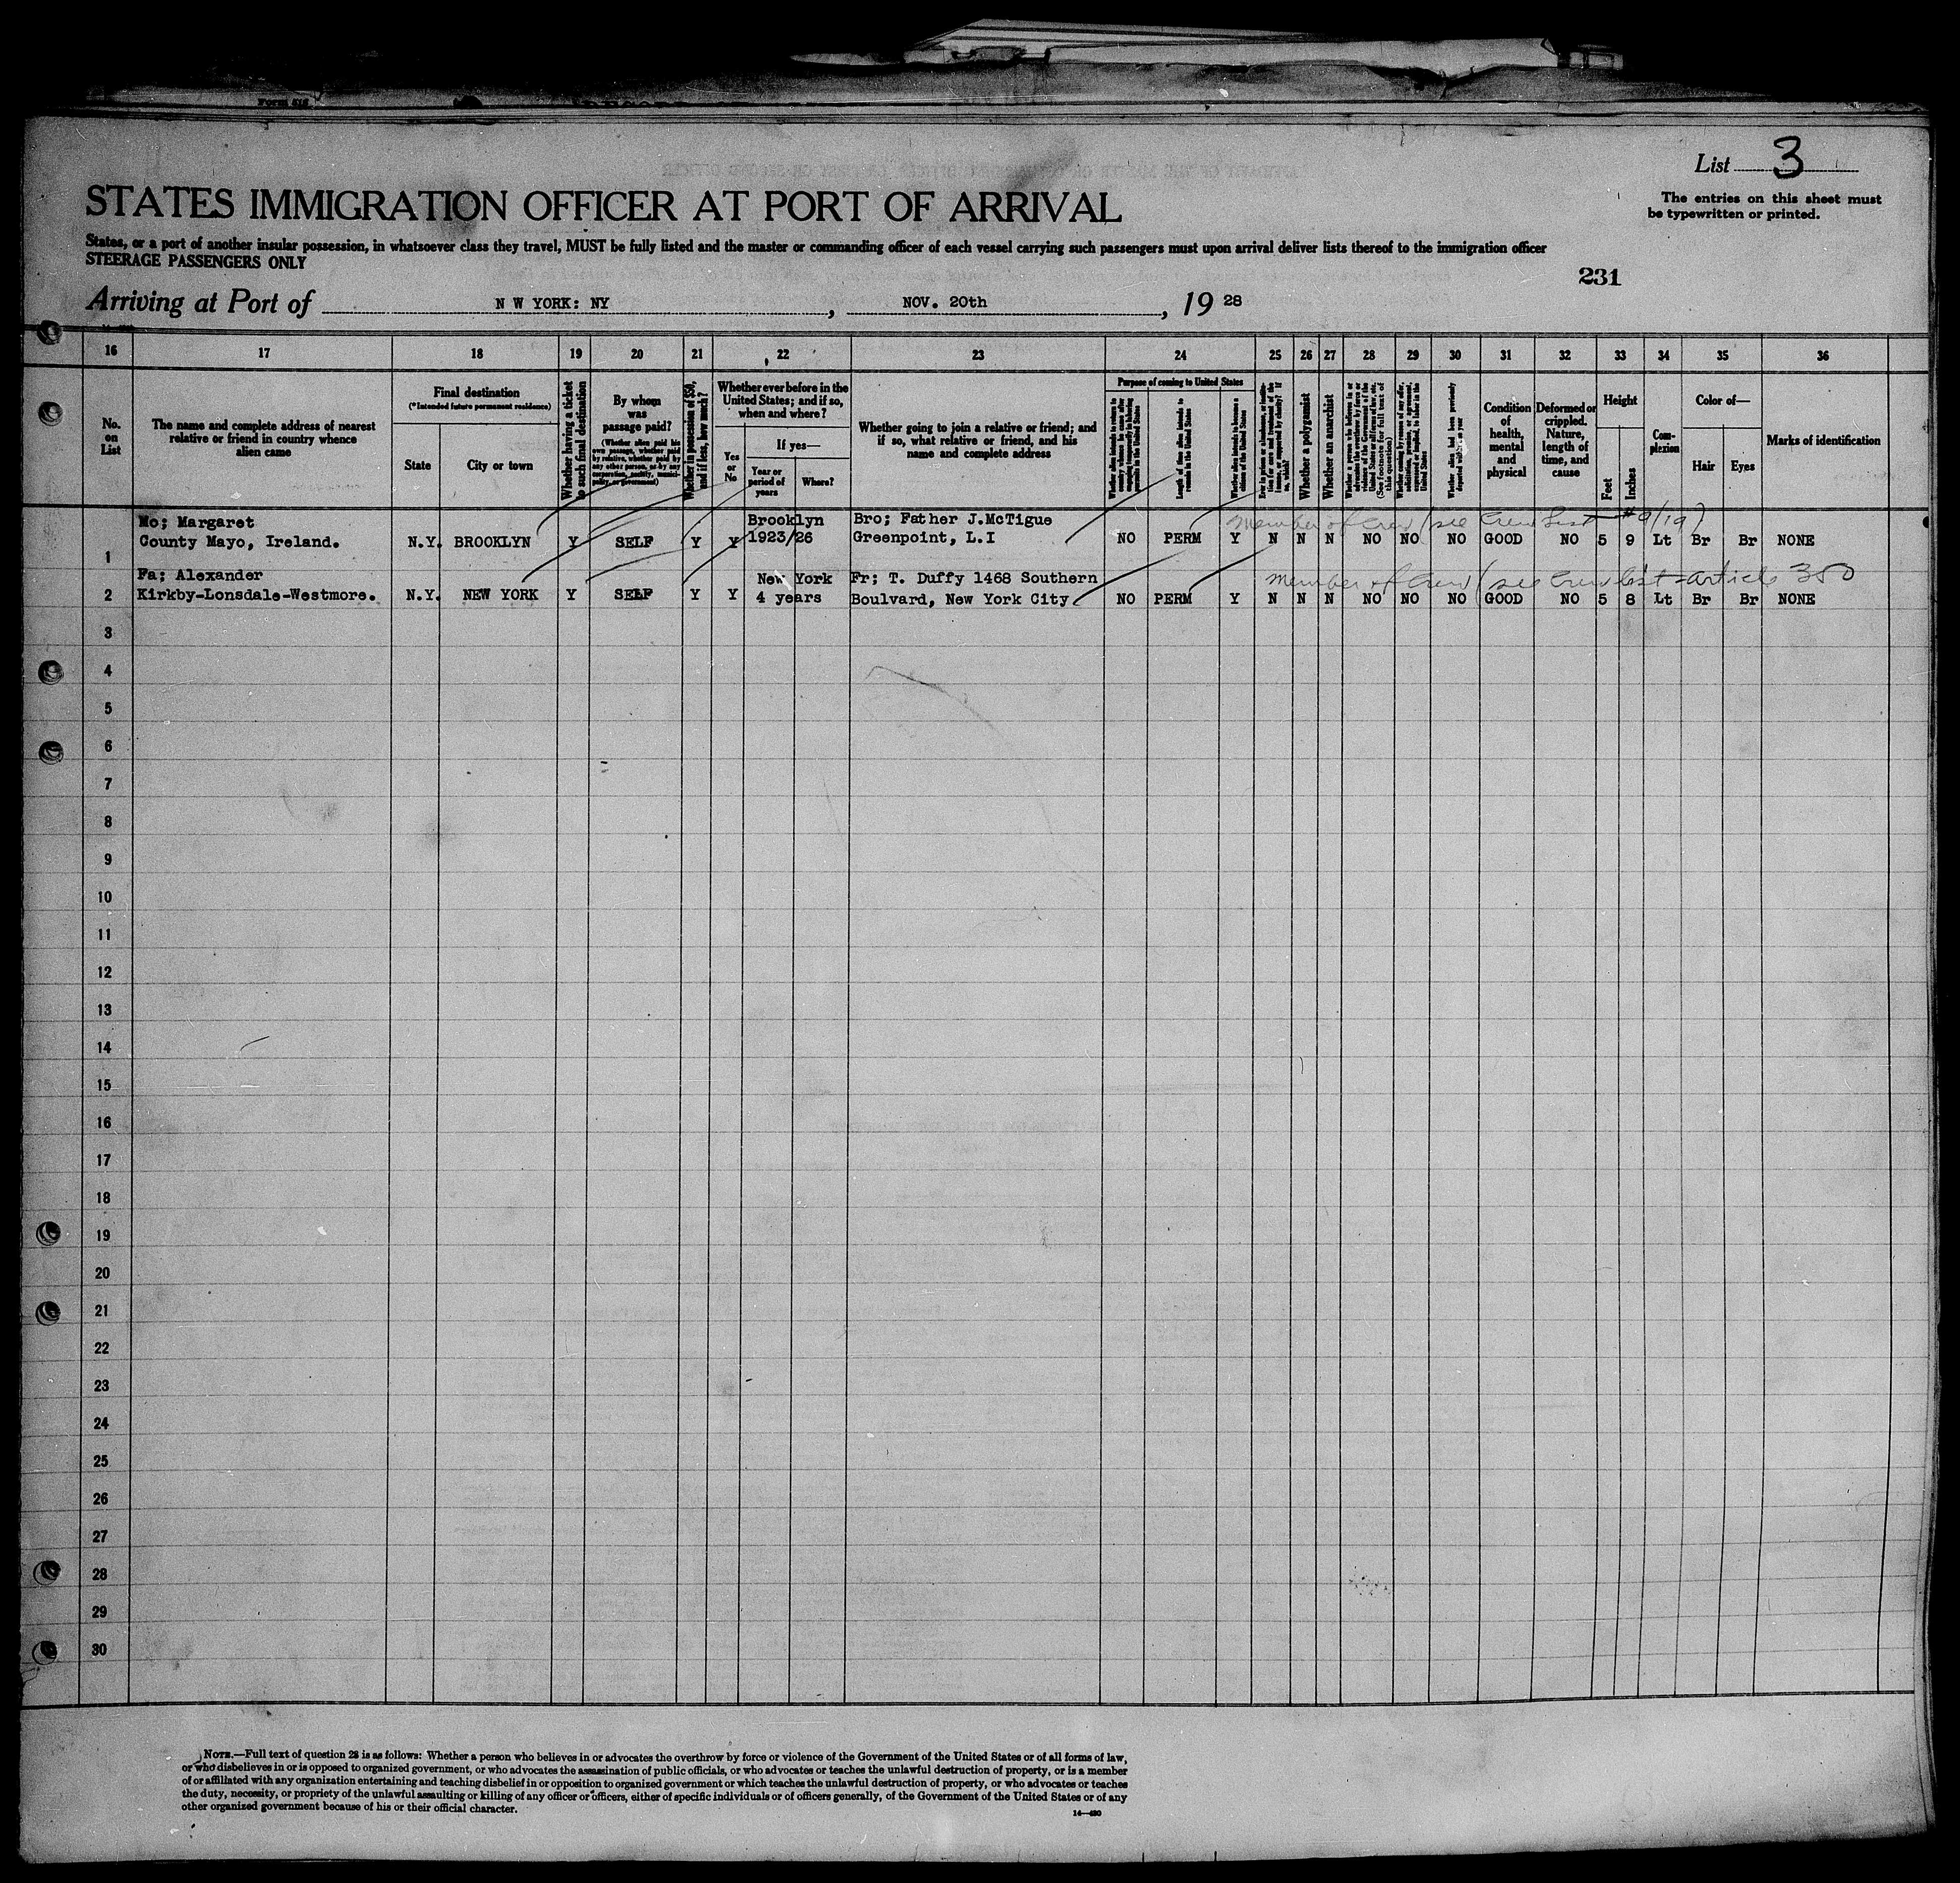 Form 616
List 3
The entries on this sheet must
be typewritten or printed.
STATES IMMIGRATION OFFICER AT PORT OF ARRIVAL
States, or a port of another insular possession, in whatsoever class they travel, MUST be fully listed and the master or commanding officer of each vessel carrying such passengers must upon arrival deliver lists thereof to the immigration officer
STEERAGE PASSENGERS ONLY
231
Arriving at Port of N W YORK: NY, NOV. 20th, 19 28
16 17 18 19 20 21 22 23 24 25 26 27 28 29 30 31 32 33 34 35 36
No.
on
List
The name and complete address of nearest
relative or friend in country whence
alien came
Final destination
(*Intended future permanent residence)
State
City or town
Whether having a ticket
to such final destination
By whom
was
passage paid?
(Whether alien paid his
own passage, whether paid
by relative, whether paid by
any other person, or by any
corporation, society, munici-
pality, or government)
Whether in possession of $50,
and if less, how much?
Whether ever before in the
United States; and if so,
when and where?
Yes
or
No
If yes—
Year or
period of
years
Where?
Whether going to join a relative or friend; and
if so, what relative or friend, and his
name and complete address
Purpose of coming to United States
Length of time alien intends to
remain in the United States
Whether alien intends to become a
citizen of the United States
Whether a polygamist
Whether an anarchist
(See footnote for full text of
this question)
Condition
of
health,
mental
and
physical
Deformed or
crippled.
Nature,
length of
time, and
cause
Height
Feet
Inches
Com-
plexion
Color of—
Hair
Eyes
Marks of identification
member of crew (see Crew List #9/19)
Mo; Margaret Brooklyn Bro; Father J.McTigue
1 County Mayo, Ireland. N.Y. BROOKLYN Y SELF Y Y 1923/26 Greenpoint, L.I NO PERM Y N N N NO NO NO GOOD NO 5 9 Lt Br Br NONE
member of crew (see Crew list = article 350
Fa; Alexander New York Fr; T. Duffy 1468 Southern
2 Kirkby-Lonsdale-Westmore. N.Y. NEW YORK Y SELF Y Y 4 years Boulvard, New York City NO PERM Y N N N NO NO NO GOOD NO 5 8 Lt Br Br NONE
3
4
5
6
7
8
9
10
11
12
13
14
15
16
17
18
19
20
21
22
23
24
25
26
27
28
29
30
NOTE.—Full text of question 28 is as follows: Whether a person who believes in or advocates the overthrow by force or violence of the Government of the United States or of all forms of law,
or who disbelieves in or is opposed to organized government, or who advocates the assassination of public officials, or who advocates or teaches the unlawful destruction of property, or is a member
of or affiliated with any organization entertaining and teaching disbelief in or opposition to organized government or which teaches the unlawful destruction of property, or who advocates or teaches
the duty, necessity, or propriety of the unlawful assaulting or killing of any officer or officers, either of specific individuals or of officers generally, of the Government of the United States or of any
other organized government because of his or their official character.
14—430